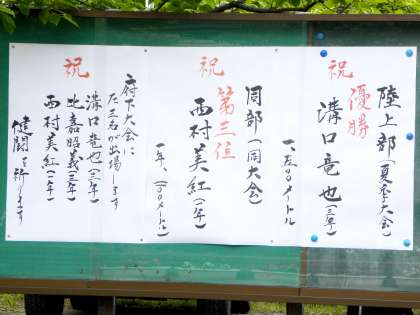 陸上部(夏季大会)
祝
優勝
溝口竜也(三年)
一、五〇〇メートル
同部(同大会)
祝
第三位
西村美紅(一年)
一年、一〇〇メートル
府下大会に
た三名が出場します
祝
溝口竜也(三年)
比嘉昭義(三年)
西村美紅(一年)
健闘を祈ります